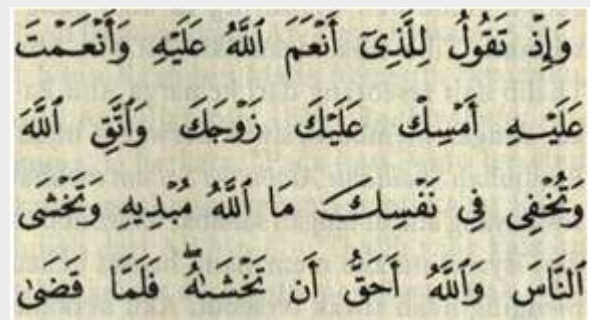 وَإِذْ تَقُولُ لِلَّذِىٓ أَنْعَمَ ٱللَّهُ عَلَيْهِ وَأَنْعَمْتَ
عَلَيْهِ أَمْسِكْ عَلَيْكَ زَوْجَكَ وَٱتَّقِ ٱللَّهَ
وَتُخْفِى فِى نَفْسِكَ مَا ٱللَّهُ مُبْدِيهِ وَتَخْشَى
ٱلنَّاسَ وَٱللَّهُ أَحَقُّ أَن تَخْشَىٰهُ ۖ فَلَمَّا قَضَىٰ